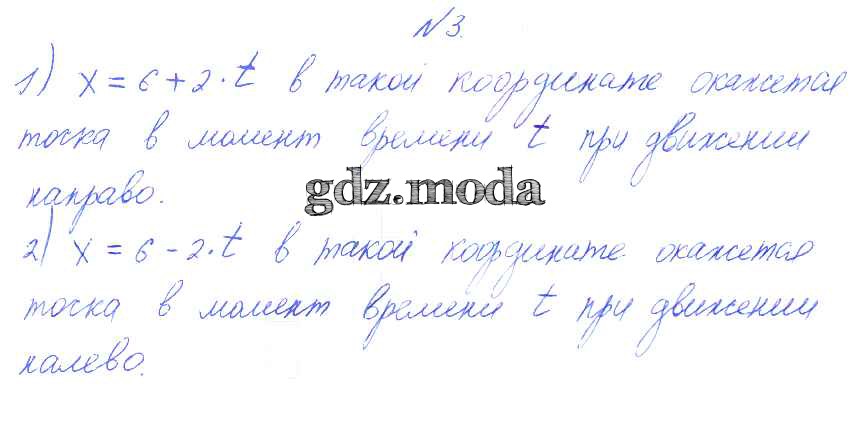 №3.
1) x = 6 + 2·t в такой координате окажется
точка в момент времени t при движении
направо.
gdz.moda
2) x = 6 - 2·t в такой координате окажется
точка в момент времени t при движении
налево.